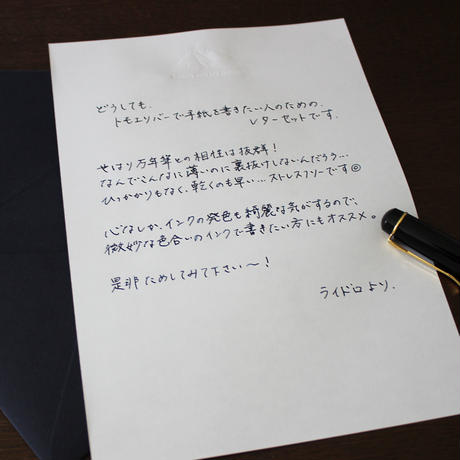 どうしても、
トモエリバーで手紙を書きたい人のための、
レターセットです。
やはり万年筆との相性は抜群！
なんでこんなに薄いのに裏抜けしないんだろう…
ひっかかりもなく、乾くのも早い…ストレスフリーです☺
心なしか、インクの発色も綺麗な気がするので、
微妙な色合いのインクで書きたい方にもオススメ。
是非ためしてみて下さい〜！
ライドロより.